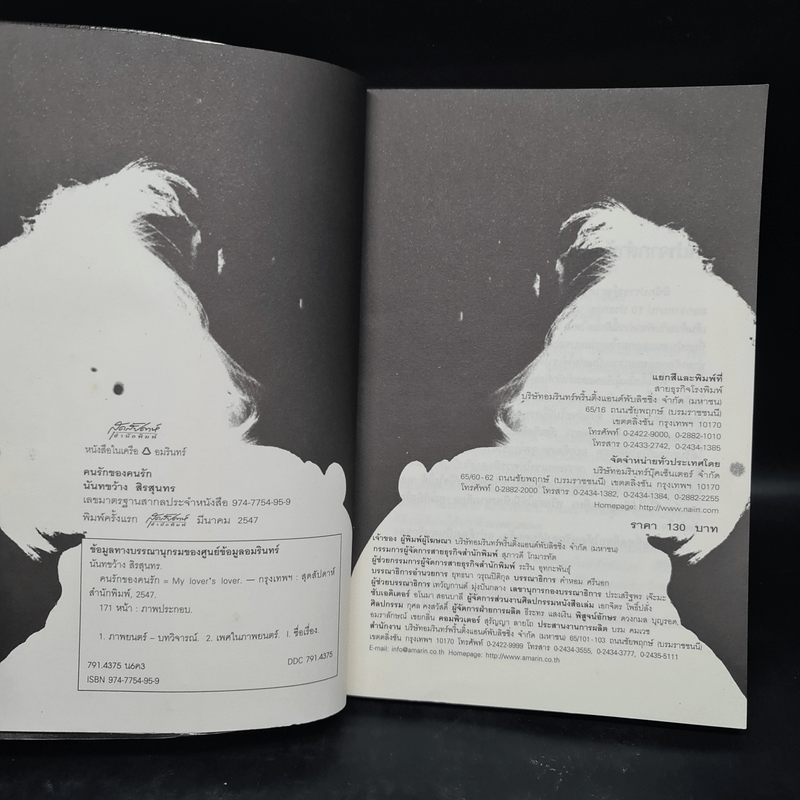 สุดสัปดาห์
สำนักพิมพ์
หนังสือในเครือ อมรินทร์
คนรักของคนรัก
นันทขว้าง สิรสุนทร
เลขมาตรฐานสากลประจำหนังสือ 974-7754-95-9
พิมพ์ครั้งแรก สุดสัปดาห์ สำนักพิมพ์ มีนาคม 2547
ข้อมูลทางบรรณานุกรมของศูนย์ข้อมูลอมรินทร์
นันทขว้าง สิรสุนทร.
คนรักของคนรัก = My lover's lover. — กรุงเทพฯ : สุดสัปดาห์
สำนักพิมพ์, 2547.
171 หน้า : ภาพประกอบ.
1. ภาพยนตร์ – บทวิจารณ์. 2. เพศในภาพยนตร์. I. ชื่อเรื่อง.
791.4375 น6ค3 DDC 791.4375
ISBN 974-7754-95-9
แยกสีและพิมพ์ที่
สายธุรกิจโรงพิมพ์
บริษัทอมรินทร์พริ้นติ้งแอนด์พับลิชชิ่ง จำกัด (มหาชน)
65/16 ถนนชัยพฤกษ์ (บรมราชชนนี)
เขตตลิ่งชัน กรุงเทพฯ 10170
โทรศัพท์ 0-2422-9000, 0-2882-1010
โทรสาร 0-2433-2742, 0-2434-1385
จัดจำหน่ายทั่วประเทศโดย
บริษัทอมรินทร์บุ๊คเซ็นเตอร์ จำกัด
65/60-62 ถนนชัยพฤกษ์ (บรมราชชนนี) เขตตลิ่งชัน กรุงเทพฯ 10170
โทรศัพท์ 0-2882-2000 โทรสาร 0-2434-1382, 0-2434-1384, 0-2882-2255
Homepage: http://www.naiin.com
ราคา 130 บาท
เจ้าของ ผู้พิมพ์ผู้โฆษณา บริษัทอมรินทร์พริ้นติ้งแอนด์พับลิชชิ่ง จำกัด (มหาชน)
กรรมการผู้จัดการสายธุรกิจสำนักพิมพ์ สุภาวดี โกมารทัต
ผู้ช่วยกรรมการผู้จัดการสายธุรกิจสำนักพิมพ์ ระริน อุทกะพันธุ์
บรรณาธิการอำนวยการ ยุทธนา วรุณปิติกุล บรรณาธิการ คำหอม ศรีนอก
ผู้ช่วยบรรณาธิการ เทวัญกานต์ มุ่งปั่นกลาง เลขานุการกองบรรณาธิการ ประเสริฐพร เจ๊ะมะ
ซับเอดิเตอร์ อโนมา สอนบาลี ผู้จัดการส่วนงานศิลปกรรมหนังสือเล่ม เอกจิตร โพธิ์ปลั่ง
ศิลปกรรม กุศล คงสวัสดิ์ ผู้จัดการฝ่ายการผลิต ธีระทร แสงเงิน พิสูจน์อักษร ดวงกมล บุญรอด,
อมราลักษณ์ เชยกลิ่น คอมพิวเตอร์ สุรัญญา ลายโถ ประสานงานการผลิต บรม คมเวช
สำนักงาน บริษัทอมรินทร์พริ้นติ้งแอนด์พับลิชชิ่ง จำกัด (มหาชน) 65/101-103 ถนนชัยพฤกษ์ (บรมราชชนนี)
เขตตลิ่งชัน กรุงเทพฯ 10170 โทรศัพท์ 0-2422-9999 โทรสาร 0-2434-3555, 0-2434-3777, 0-2435-5111
E-mail: info@amarin.co.th Homepage: http://www.amarin.co.th